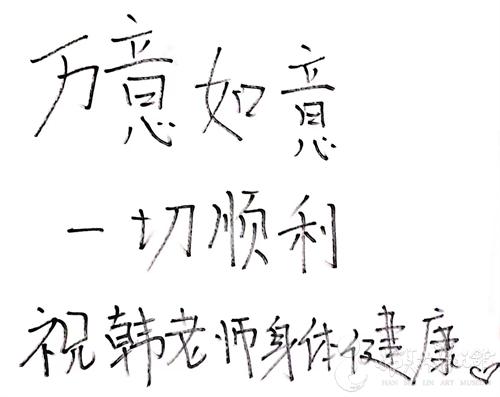 万意如意
一切顺利
祝韩老师身体健康